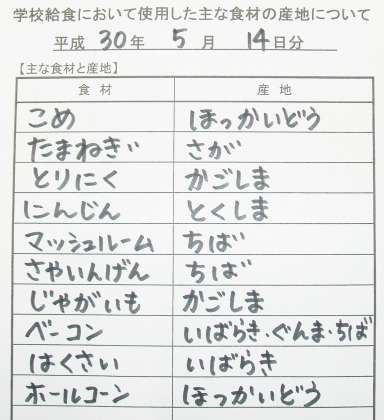 学校給食において使用した主な食材の産地について
平成 30年 5月 14日分
【主な食材と産地】
食材 産地
こめ ほっかいどう
たまねぎ さが
とりにく かごしま
にんじん とくしま
マッシュルーム ちば
さやいんげん ちば
じゃがいも かごしま
ベーコン いばらき・ぐんま・ちば
はくさい いばらき
ホールコーン ほっかいどう